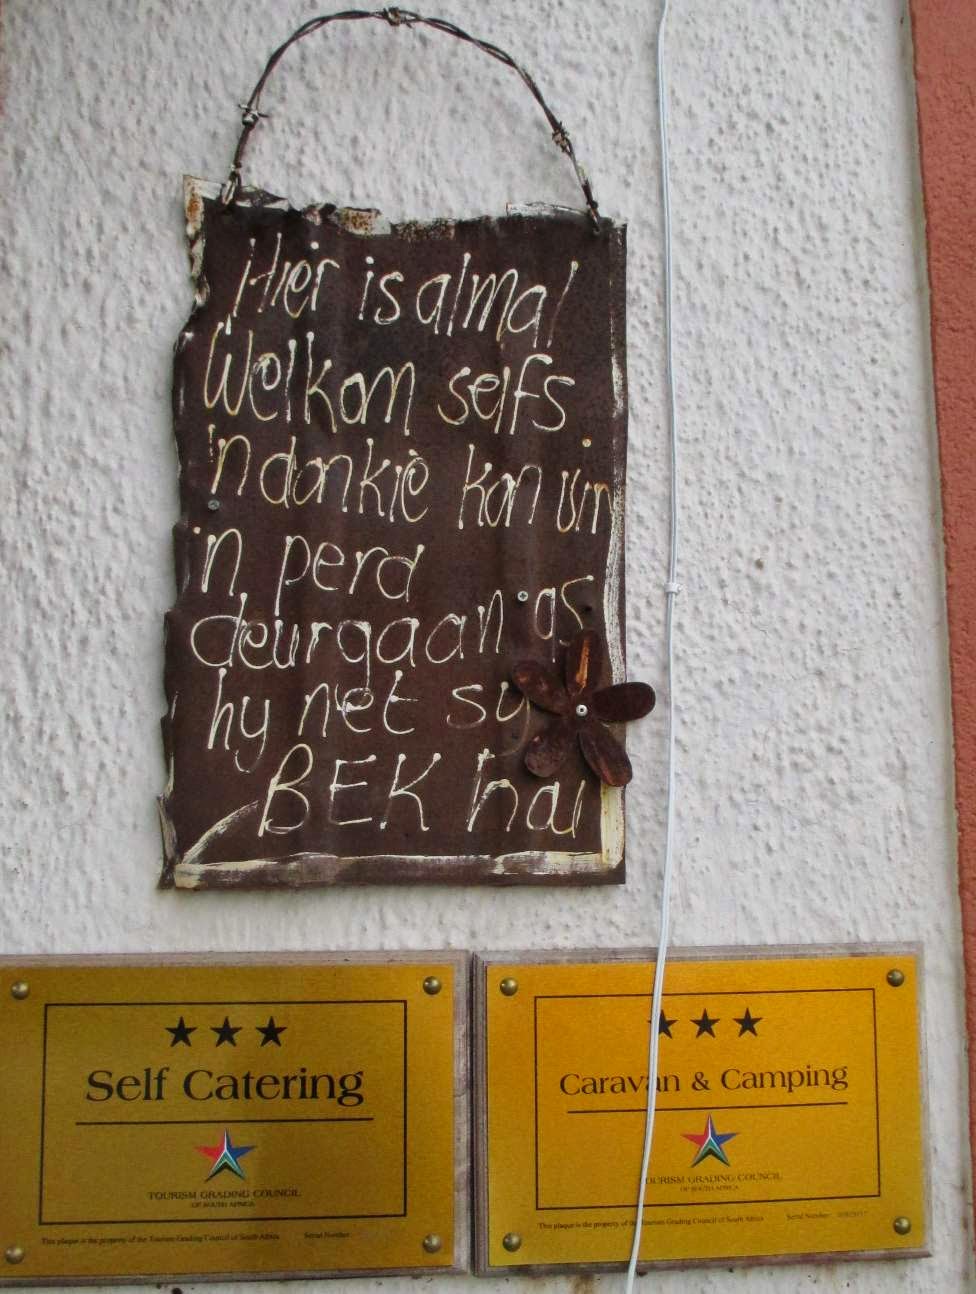 Hier is almal
Welkom selfs
'n donkie kan vir
'n perd
deurgaan as
hy net sy
BEK hou
Self Catering
TOURISM GRADING COUNCIL
OF SOUTH AFRICA
This plaque is the property of the Tourism Grading Council of South Africa Serial Number:
Caravan & Camping
TOURISM GRADING COUNCIL
OF SOUTH AFRICA
This plaque is the property of the Tourism Grading Council of South Africa Serial Number: